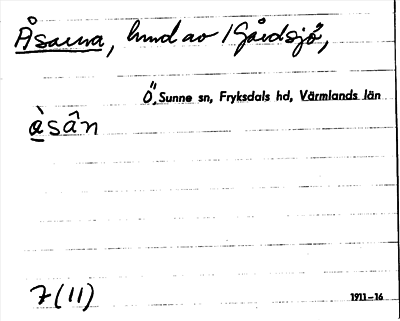 Åsarna, hund av /Gårdsjö,
Ö. Sunne sn, Fryksdals hd, Värmlands län
å̱̀sân
7(11)
1911–16